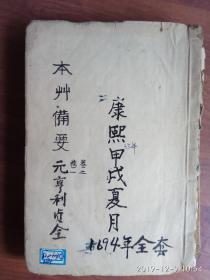 康熙甲戌夏月
1694年全套
本艸備要
卷之
卷一
元亨利貞全
2019-12-9 0:54